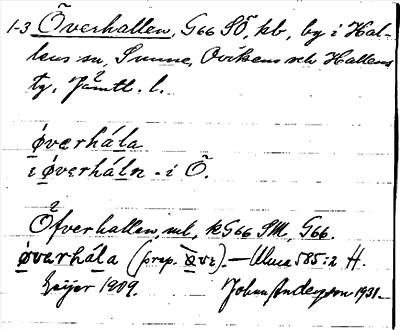 1-3 Överhallen, G66 SÖ, kb, by i Hal-
lens sn, Sunne, Ovikens och Hallens
tg, Jämtl. l.
øverhála
i øverháln - i Ö.
Öfverhallen, ml, kG66 SM, G66.
øvarhála (prep. i). — Uluca 585:2 H.
Geijer 1909. Johan Anderson 1931.